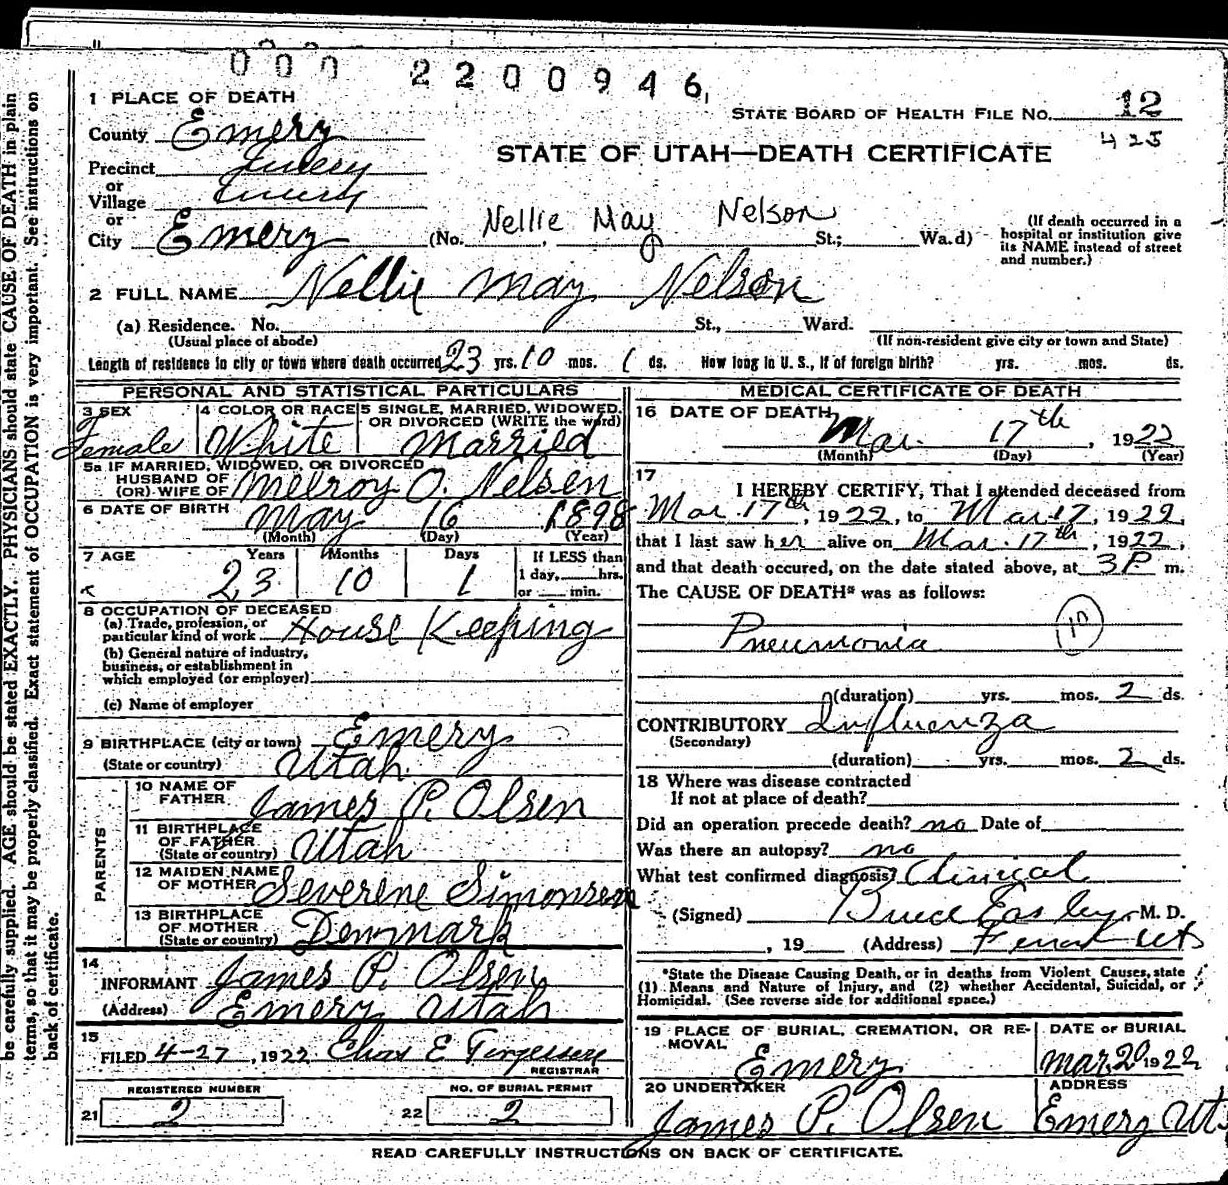 000 2200946
1 PLACE OF DEATH
STATE BOARD OF HEALTH FILE NO. 12
425
County Emery
STATE OF UTAH—DEATH CERTIFICATE
Precinct Emery
or
Village Emery
or
City Emery (No. Nellie May Nelson St.; Wa.d)
(If death occurred in a hospital or institution give its NAME instead of street and number.)
2 FULL NAME Nellie May Nelson
(a) Residence. No. St., Ward.
(Usual place of abode) (If non-resident give city or town and State)
Length of residence in city or town where death occurred 23 yrs. 10 mos. 1 ds. How long in U. S., if of foreign birth? yrs. mos. ds.
PERSONAL AND STATISTICAL PARTICULARS
3 SEX
Female
4 COLOR OR RACE
White
5 SINGLE, MARRIED, WIDOWED, OR DIVORCED (WRITE the word)
Married
5a IF MARRIED, WIDOWED, OR DIVORCED
HUSBAND OF
(OR) WIFE OF Melroy O. Nelsen
6 DATE OF BIRTH May 16 1898
(Month) (Day) (Year)
7 AGE Years Months Days If LESS than
23 10 1 1 day, hrs.
or min.
8 OCCUPATION OF DECEASED
(a) Trade, profession, or
particular kind of work House Keeping
(b) General nature of industry,
business, or establishment in
which employed (or employer)
(c) Name of employer
9 BIRTHPLACE (city or town) Emery
(State or country) Utah
PARENTS
10 NAME OF
FATHER James P. Olsen
11 BIRTHPLACE
OF FATHER
(State or country) Utah
12 MAIDEN NAME
OF MOTHER Severene Simonsen
13 BIRTHPLACE
OF MOTHER
(State or country) Denmark
14
INFORMANT James P. Olsen
(Address) Emery Utah
15
FILED 4-27, 1922 Chas E
REGISTRAR
REGISTERED NUMBER
21 2
NO. OF BURIAL PERMIT
22 2
MEDICAL CERTIFICATE OF DEATH
16 DATE OF DEATH
Mar. 17th, 1922
(Month) (Day) (Year)
17
I HEREBY CERTIFY, That I attended deceased from
Mar. 17th, 1922, to Mar. 17, 1922,
that I last saw her alive on Mar. 17th, 1922,
and that death occured, on the date stated above, at 3 P. m.
The CAUSE OF DEATH* was as follows:
Pneumonia
(duration) yrs. mos. 2 ds.
CONTRIBUTORY Influenza
(Secondary)
(duration) yrs. mos. 2 ds.
18 Where was disease contracted
If not at place of death?
Did an operation precede death? no Date of
Was there an autopsy? no
What test confirmed diagnosis? Clinical
(Signed) Easley M. D.
, 19 (Address)
*State the Disease Causing Death, or in deaths from Violent Causes, state
(1) Means and Nature of Injury, and (2) whether Accidental, Suicidal, or
Homicidal. (See reverse side for additional space.)
19 PLACE OF BURIAL, CREMATION, OR REMOVAL
Emery
DATE OF BURIAL
Mar. 20 1922
20 UNDERTAKER
James P. Olsen
ADDRESS
Emery Ut.
READ CAREFULLY INSTRUCTIONS ON BACK OF CERTIFICATE.
be carefully supplied. AGE should be stated EXACTLY. PHYSICIANS should state CAUSE OF DEATH in plain
terms, so that it may be properly classified. Exact statement of OCCUPATION is very important. See instructions on
back of certificate.